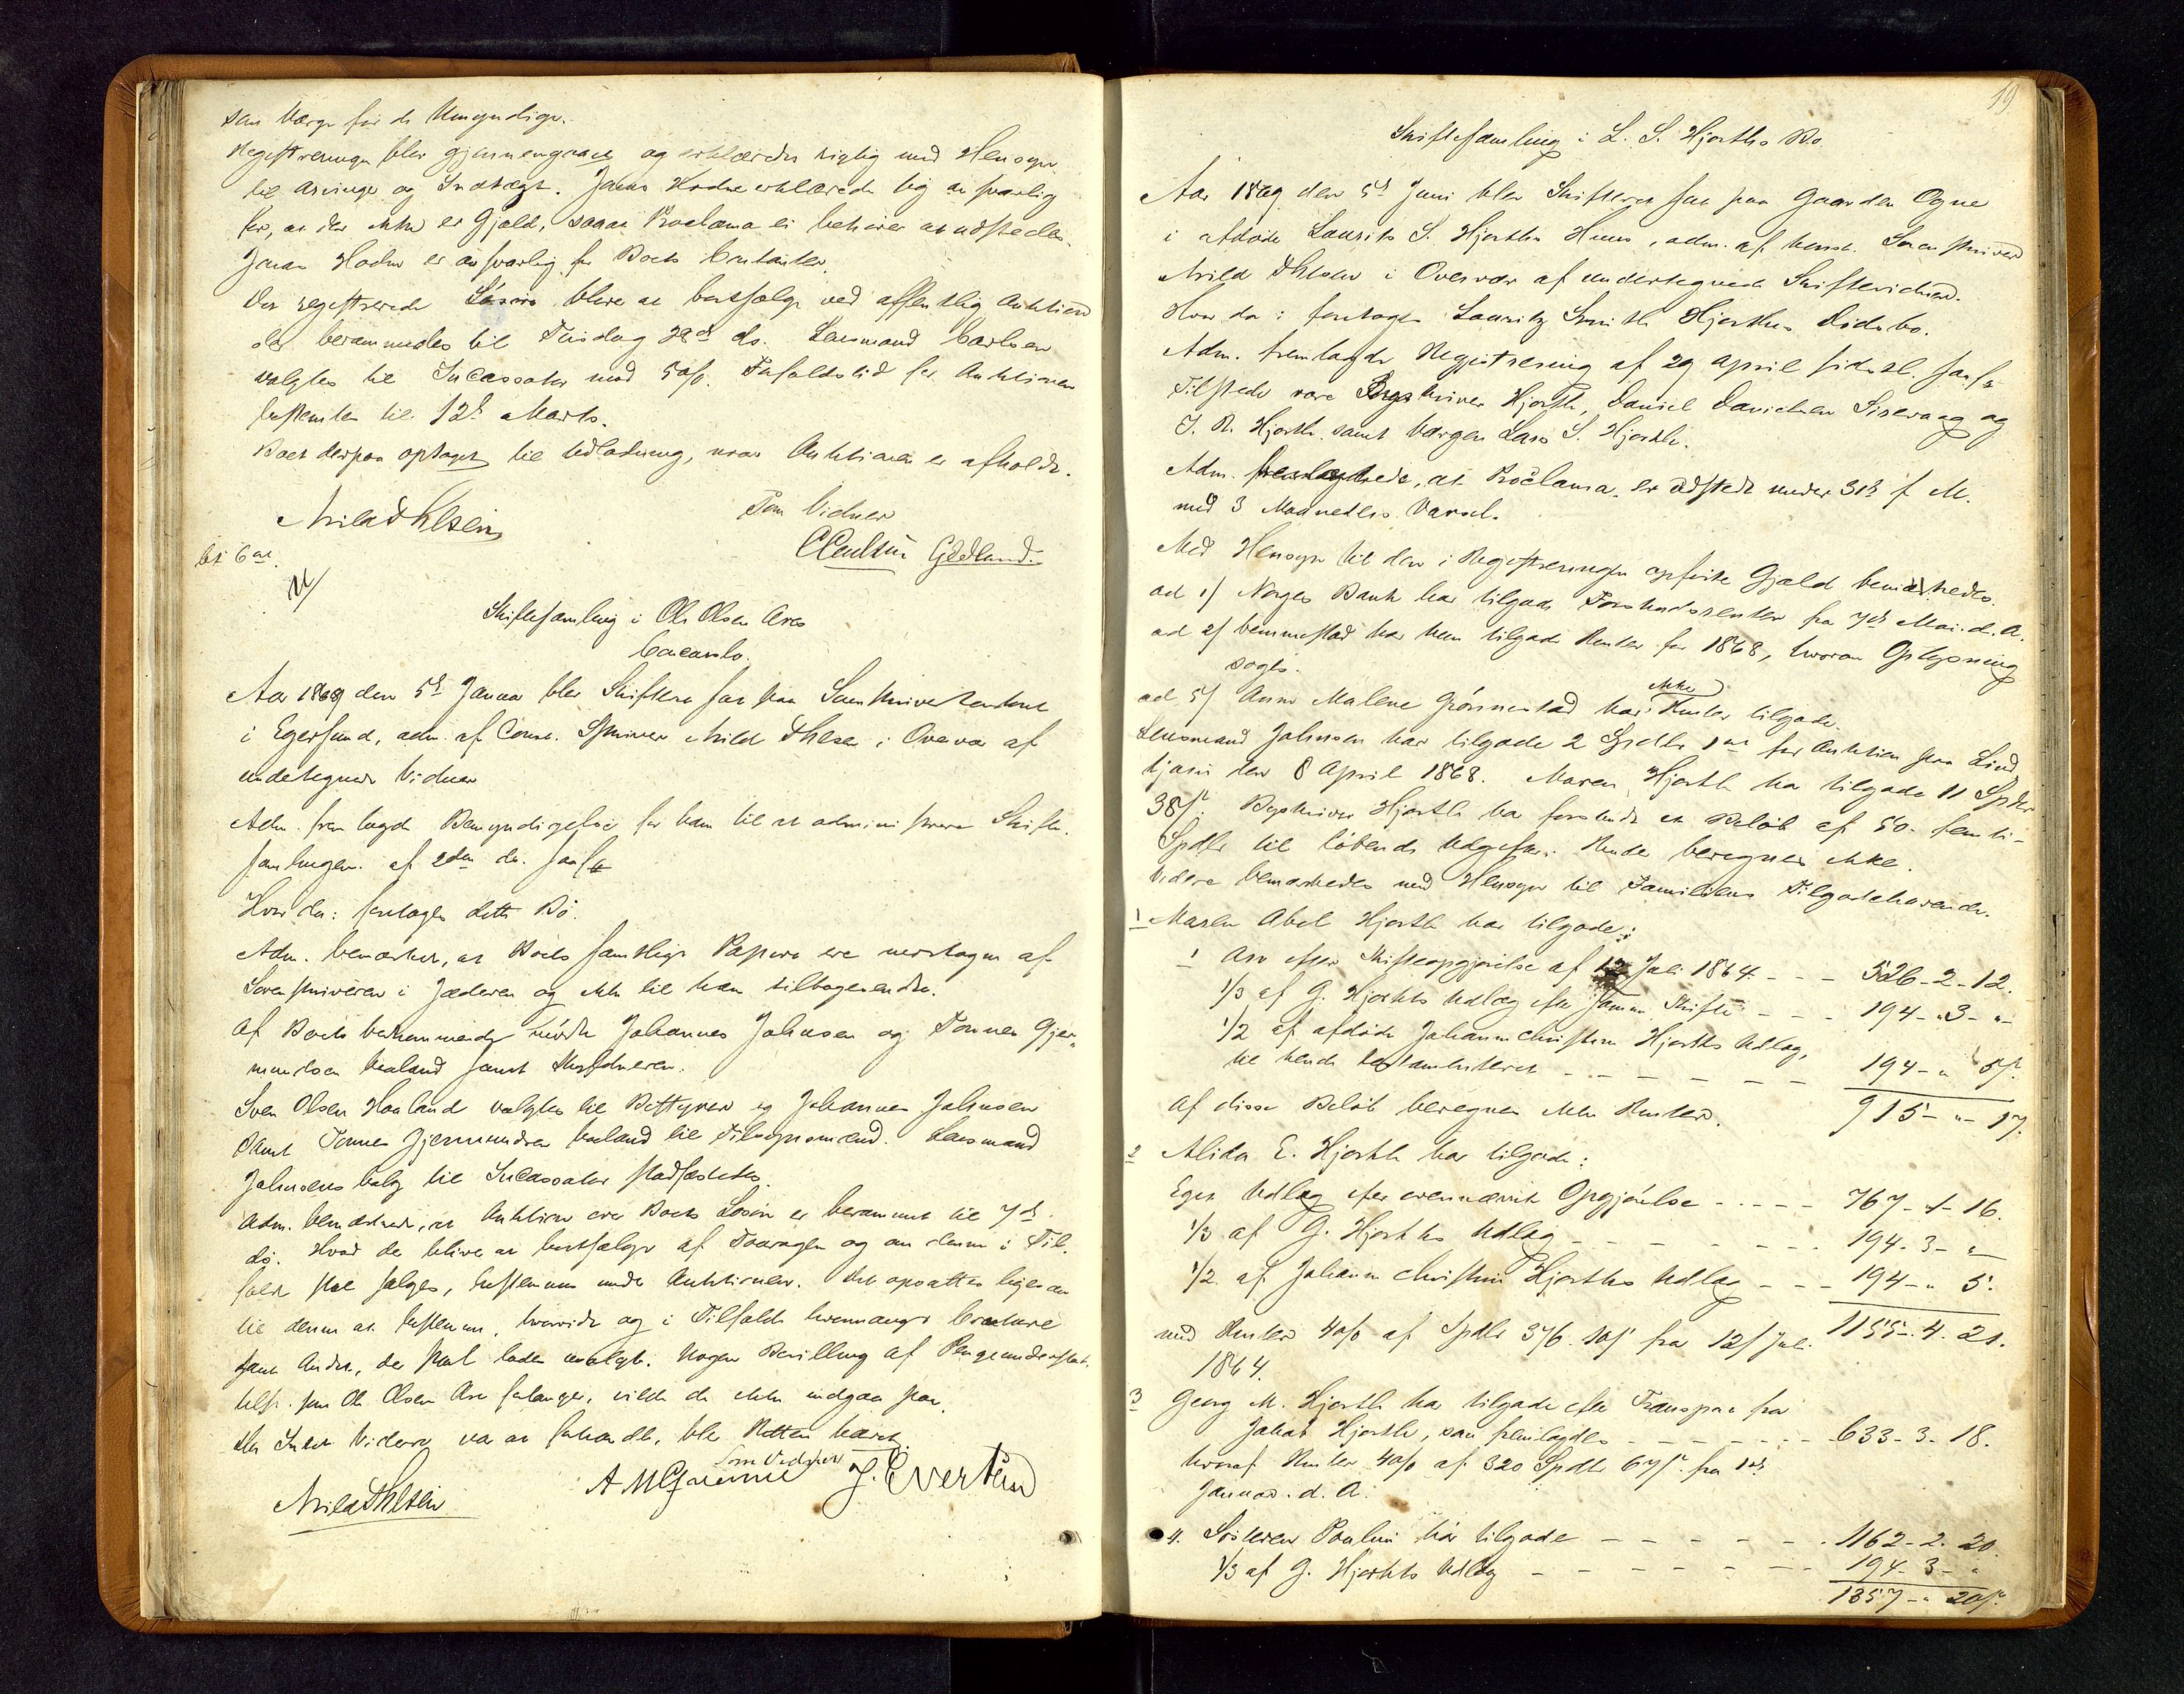 som Værge for de Umyndige.
Registreringen blev gjennemgaaet og erklæredes rigtig med Hensyn
til Arvinger og Indtægt. Jonas Hodne erklærede sig ansvarlig
for, at der ikke er Gjæld, saaat Proclama ei behøver at udstedes.
Jonas Hodne er ansvarlig for Boets Contanter.
Det registrerede Løsøre bliver at bortsælge ved offentlig Auktion
der berammedes til Tirsdag 28de ds. Lensmand Carlsen
valgtes til Incassator mod 5 o/o. Forfaldstid for Auktionen
bestemtes til 12te Marts.
Boet derpaa optaget til Udlodning, naar Auktionen er afholdt.
Som Vidner
Arild Thlsen
C Paulsen Gjedland.
Skiftesamling i Ole Olsen Ares
Concursbo.
Aar 1869 den 5te Januar blev Skifteret sat paa Sorenskriverkontoret
i Egersund, adm. af Const. Sskriver Arild Thlsen i Overvær af
undertegnede Vidner
Adm. fremlagde Bemyndigelse for ham til at administrere Skifte-
samlingen af 2den ds.
Hvorda: foretoges dette Bo.
Adm. bemærker, at Boets samtlige Papirer ere modtagne af
Sorenskriveren i Jæderen og ikke til ham tilbagesendte.
Af Boets Vedkommende mødte Johannes Johnsen og Tønnes Gjer-
mundsen Veland samt Skyldneren.
Sven Olsen Haaland valgtes til Bestyrer og Johannes Johnsen
samt Tønnes Gjermundsen Veland til Tilsynsmænd. Lensmand
Johnsens Valg til Incassator stadfæstedes.
Adm. bemærkede, at Auktion over Boets Løsøre er berammet til 7de
ds. Hvad der bliver at bortsælge af Fæ og om denne i Til-
fælde skal sælges, bestemmes under Auktionen. Det opsattes ligesaa
til denne at bestemme, hvorvidt og i Tilfælde hvormange Creature
samt Andet, der skal lades usolgt. Nogen Bevilling af Penge
som Ole Olsen Are forlanger, vilde de ikke indgaa paa.
Da Intet Videre var at forhandle, blev Retten hævet.
Som Vidner
Arild Thlsen
J. Evertsen
19
Skiftesamling i L. S. Hjorths Bo
Aar 1869 den 5te Juni blev Skifteret sat paa Gaarden Ogne
i afdøde Laurits S. Hjorths Huus, adm. af const. Sorenskriver
Arild Thlsen i Overvær af undertegnede Skiftevidner.
Hvorda: foretages Lauritz Smith Hjorths Dødsbo.
Adm. fremlagde Registrering af 29 April sidstl.
Tilstede vare Byskriver Hjorth, Daniel Danielsen Sirevaag og
J. R. Hjorth samt Værgen Lars S. Hjorth.
Adm. bemærkede, at Proclama er udstedt under 31te f. M.
med 3 Maaneders Varsel.
Med Hensyn til den i Registreringen opførte Gjæld bemærkedes.
ad 1/ Norges Bank har tilgode Forskudsrenter fra 7de Mai d. A.
ad 2/ har kun tilgode Renter for 1868, hvorom Oplysning
søges.
ad 5/ Anne Malene Grønnestad har ikke Renter tilgode
Lensmand Johnsen har tilgode 2 Spdlr 1 ort for Auktion paa Lind-
tjørn den 8 April 1868. Maren Hjorth har tilgode 11 Spdlr
38 s. Byskriver Hjorth har forskudt et Beløb af 50 femti-
Spdlr til løbende Udgifter. Rente beregnes ikke.
Videre bemærkedes med Hensyn til Familiens Tilgodehavende.
1 Maren Abel Hjorth har tilgode:
1 Arv efter Skifteopgjørelse af 12 Juli 1864 - - - 526-2-12.
1/3 af G. Hjorths Udlæg efter samme Skifte - - - 194-3-"-
1/2 af afdøde Johanne Christine Hjorths Udlæg,
til hende testamenteret - - - - - - 194-" 5 s.
Af disse Beløb beregnes ikke Renter. 915-"-17.
2 Alida E. Hjorth har tilgode:
Eget Udlæg efter ovennævnte Opgjørelse - - - - 767-1-16.
1/3 af G. Hjorths Udlæg - - - - - - - 194-3-"
1/2 af Johanne Christine Hjorths Udlæg - - - 194-" 5.
1155-4-21.
med Renter 4 o/o af Spdlr 376. 10 s fra 12/ Juli
1864.
3 Georg M. Hjorth har tilgode efter Transport fra
Jakob Hjorth, som fremlagdes - - - - - - - 633-3-18.
hvoraf Renter 4 o/o af 320 Spdlr 67 s. fra 1ste
Januar d. A.
4. Søsteren Pauline har tilgode - - - - - - 1162-2-20.
1/3 af G. Hjorths Udlæg - - - - - - - 194-3-"
1357-" 20 s.